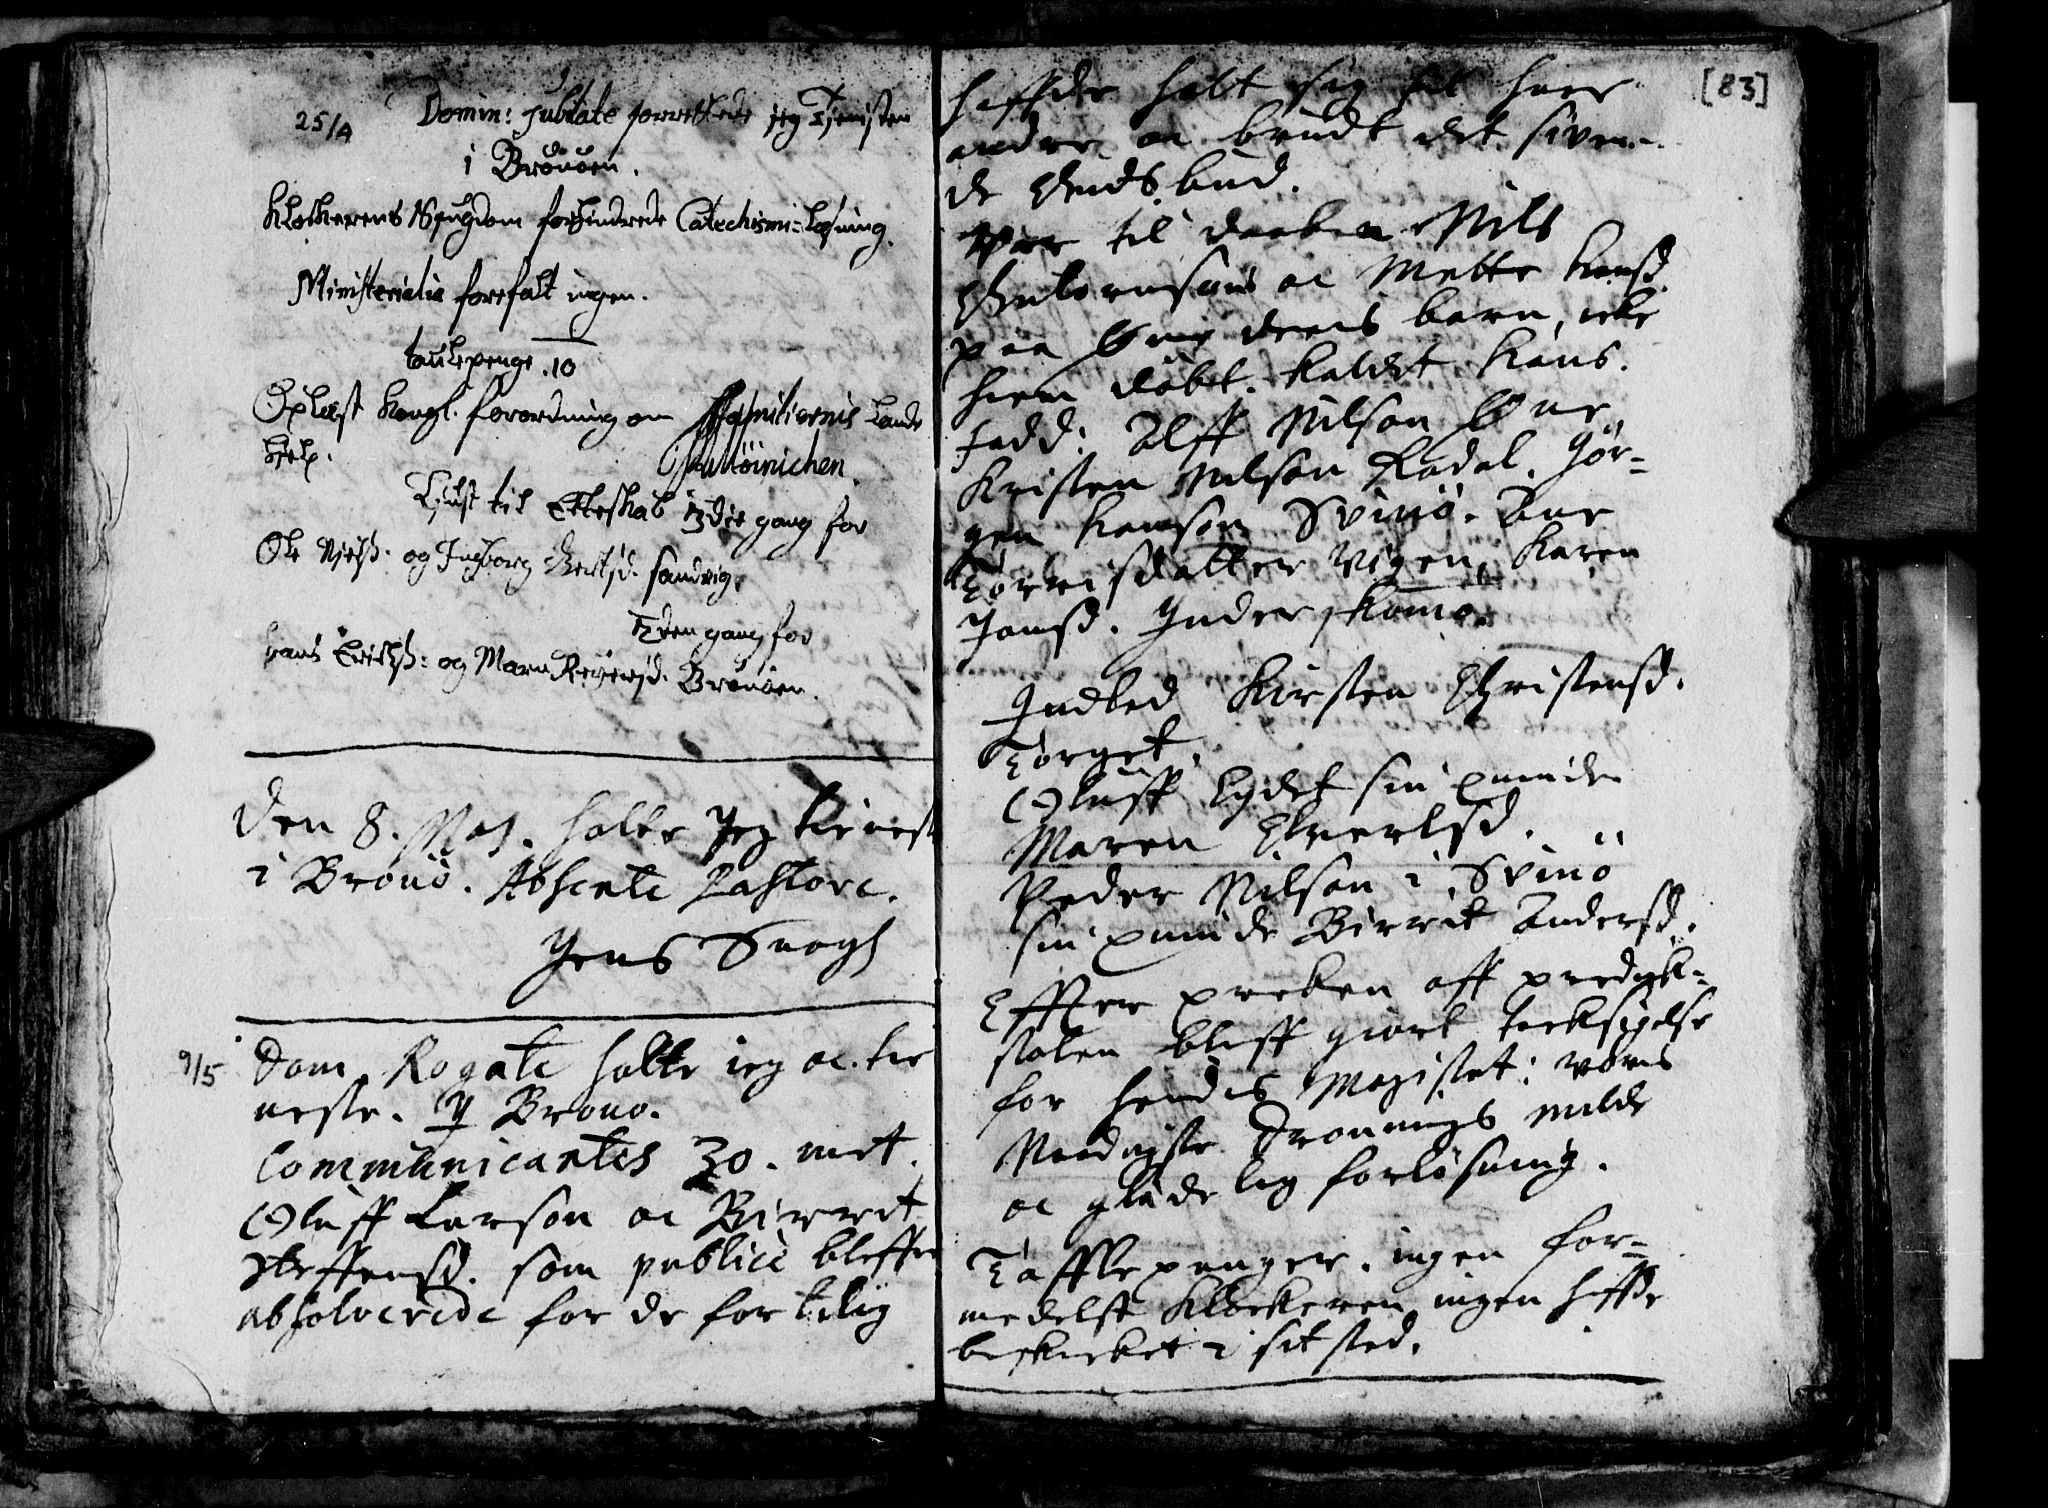 25/4 Domin: Jubilate forrettede jeg Tjenisten
i Brønøen.
Klokkerens Siugdom forhindrede Catechismi-Læsning.
Ministerialia forefalt ingen.
taulepenge. 10
Oplæst Kongl. forordning om Familiernis Lands
hielp.
Liust til Ecteskab 3die gang for
Ole Nielsß. og Ingborg sandvig.
3den gang for
Hans og Maren Brønøen.
Den 8. Maj. holte Jeg tienest
i Brönö. Absente Pastore.
Jens Snogh
9/5 Dom. Rogate holte ieg oc tie
neste. I Brönö.
Communicantes 30. met.
Oluff Larson oc Birrit
Steffensd. som publicè bleffue
absolverede for de fortilig
[83]
haffde holt sig til huer
andre, oc brudt det siven-
de Gudsbud.
Var til daaben Nils
oc Mette Hansd.
paa deris barn, icke
hiem döbt. kaldet Hans.
Fadd: Alff Nilson
Kristen Nilson Rodal. Jör-
gen Hanson Svinö. Ane
Törrisdatter Vigen, Karen
Jonsd. Inder
Indled Kirsten Christensd.
Torget.
Oluff sin quinde
Maren Evertsd.
Peder Nilson i Svinö
sin quinde Birrit Andersd.
Effter preken aff predik-
stolen bleff giort tacksigelse
for hendis Mayistet: voris
Naadigste Dronnings milde
oc glædelig forlösning.
Taffle penger. ingen for-
medelst Klockeren ingen haffde
beskicket i sit sted.